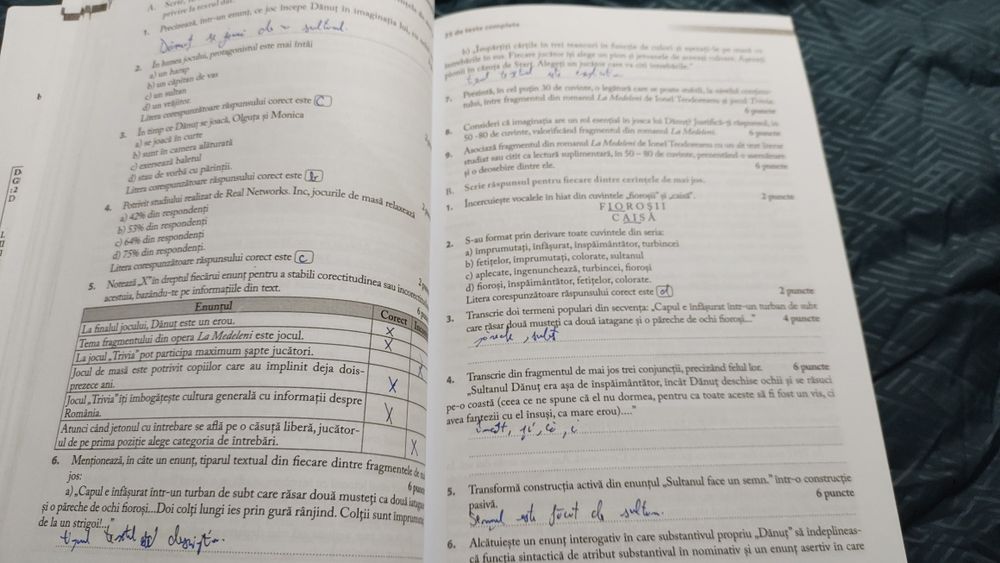 A. Scrie,
privire la textul dat.
1. Precizează, într-un enunț, ce joc începe Dănuț în imaginația lui,
Dănuț se joacă de-a sultanul.
2. În lumea jocului, protagonistul este mai întâi
a) un harap
b) un căpitan de vas
c) un sultan
d) un vrăjitor.
Litera corespunzătoare răspunsului corect este C
3. În timp ce Dănuț se joacă, Olguța și Monica
a) se joacă în curte
b) sunt în camera alăturată
c) exersează baletul
d) stau de vorbă cu părinții.
Litera corespunzătoare răspunsului corect este b
4. Potrivit studiului realizat de Real Networks. Inc, jocurile de masă relaxează
a) 42% din respondenți
b) 53% din respondenți
c) 64% din respondenți
d) 75% din respondenți.
Litera corespunzătoare răspunsului corect este c
5. Notează „X” în dreptul fiecărui enunț pentru a stabili corectitudinea sau
acestuia, bazându-te pe informațiile din text.
Enunțul Corect
La finalul jocului, Dănuț este un erou. X
Tema fragmentului din opera La Medeleni este jocul. X
La jocul „Trivia” pot participa maximum șapte jucători. X
Jocul de masă este potrivit copiilor care au împlinit deja dois-
prezece ani. X
Jocul „Trivia” îți îmbogățește cultura generală cu informații despre
România. X
Atunci când jetonul cu întrebare se află pe o căsuță liberă, jucător-
ul de pe prima poziție alege categoria de întrebări. X
6. Menționează, în câte un enunț, tiparul textual din fiecare dintre fragmentele de mai
jos:
a) „Capul e înfășurat într-un turban de subt care răsar două musteți ca două
și o păreche de ochi fioroși...Doi colți lungi ies prin gură rânjind. Colții sunt
de la un strigoi!..."
tipul textual este descriptiv.
35 de teste complete
b) „Împărțiți cărțile în trei teancuri în funcție de culori și așezați-le pe masă cu
întrebările în sus. Fiecare jucător își alege un pion și jetoanele de aceeași culoare. Așezați
pionii în căsuța de Start. Alegeți un jucător care va citi întrebările.”
tipul textual este
7. Prezintă, în cel puțin 30 de cuvinte, o legătură care se poate stabili, la nivelul conținu-
tului, între fragmentul din romanul La Medeleni de Ionel Teodoreanu și jocul Trivia.
6 puncte
8. Consideri că imaginația are un rol esențial în joaca lui Dănuț? Justifică-ți răspunsul, în
50 -80 de cuvinte, valorificând fragmentul din romanul La Medeleni. 6 puncte
9. Asociază fragmentul din romanul La Medeleni de Ionel Teodoreanu cu un alt text literar
studiat sau citit ca lectură suplimentară, în 50 – 80 de cuvinte, prezentând o asemănare
și o deosebire dintre ele. 6 puncte
B. Scrie răspunsul pentru fiecare dintre cerințele de mai jos.
1. Încercuiește vocalele în hiat din cuvintele „fioroșii” și „caisă”. 2 puncte
FIOROȘII
CAISĂ
2. S-au format prin derivare toate cuvintele din seria:
a) împrumutați, înfășurat, înspăimântător, turbincei
b) fetițelor, împrumutați, colorate, sultanul
c) aplecate, îngenunchează, turbincei, fioroși
d) fioroși, înspăimântător, fetițelor, colorate.
Litera corespunzătoare răspunsului corect este d 2 puncte
3. Transcrie doi termeni populari din secvența: „Capul e înfășurat într-un turban de subt
care răsar două musteți ca două iatagane și o păreche de ochi fioroși...” 4 puncte
păreche, subt
4. Transcrie din fragmentul de mai jos trei conjuncții, precizând felul lor. 6 puncte
„Sultanul Dănuț era așa de înspăimântător, încât Dănuț deschise ochii și se răsuci
pe-o coastă (ceea ce ne spune că el nu dormea, pentru ca toate aceste să fi fost un vis, ci
avea fantezii cu el însuși, ca mare erou)....”
încât, și, că, ci
5. Transformă construcția activă din enunțul „Sultanul face un semn.” într-o construcție
pasivă. 6 puncte
Semnul este făcut de sultan.
6. Alcătuiește un enunț interogativ în care substantivul propriu „Dănuț” să îndeplineas-
că funcția sintactică de atribut substantival în nominativ și un enunț asertiv în care